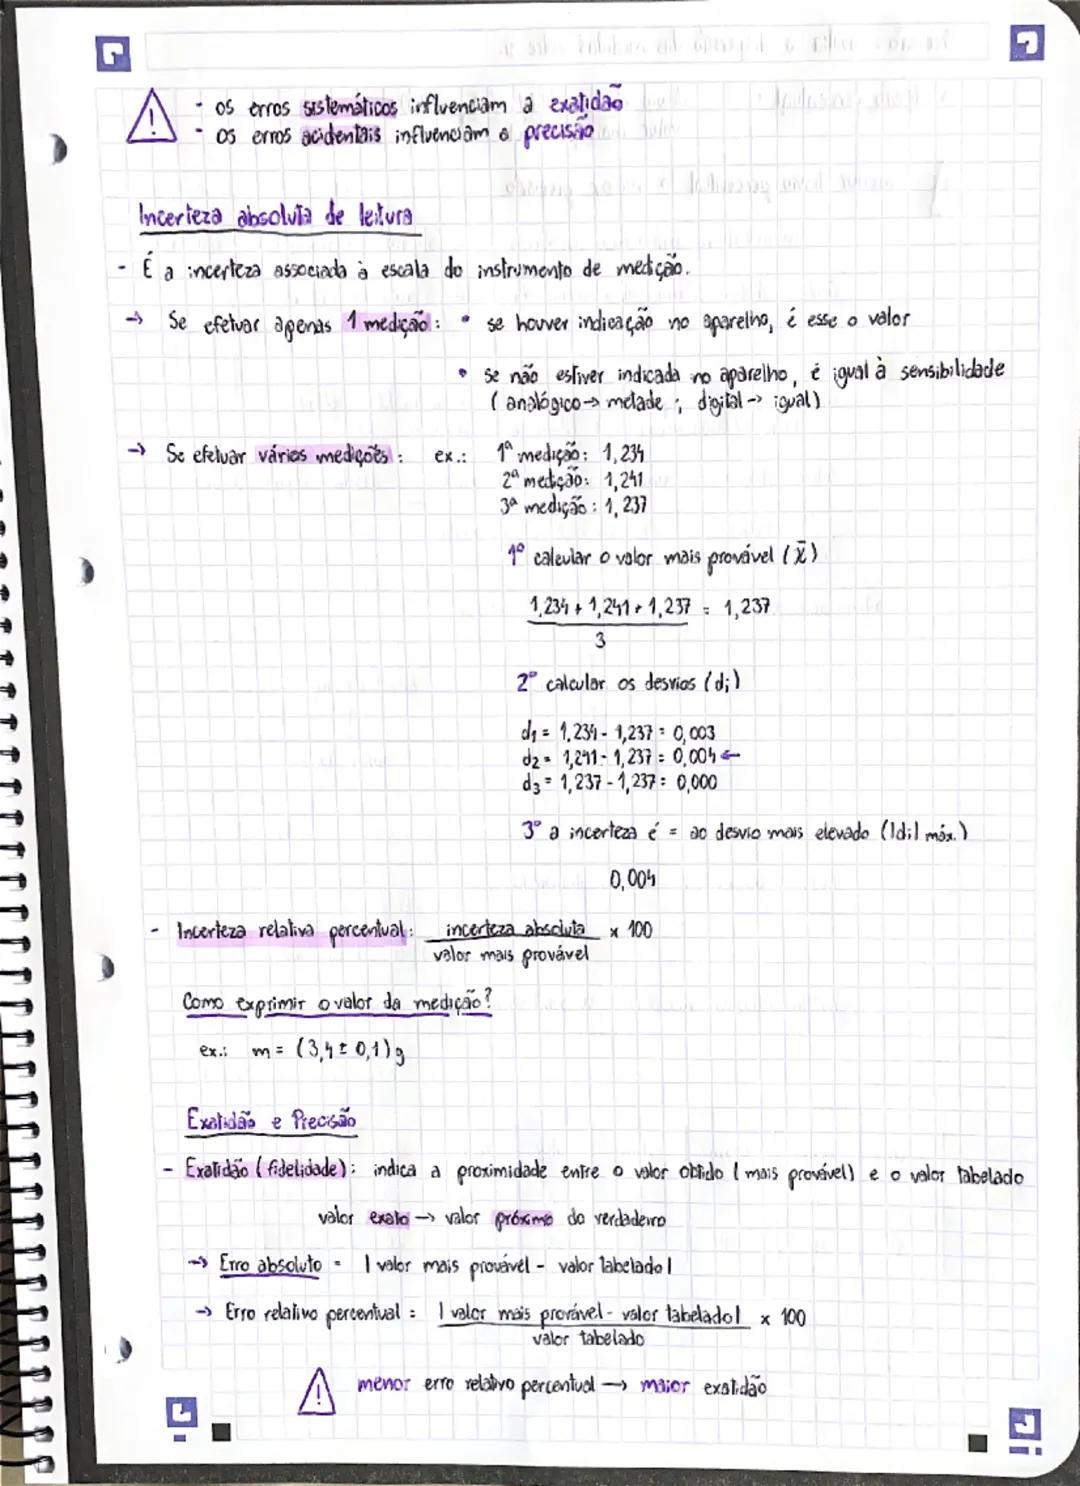 - os erros sistemáticos influenciam a exatidão
- os erros acidentais influenciam a precisão
Incerteza absoluta de leitura
- É a incerteza associada à escala do instrumento de medição.
→ Se efetuar apenas 1 medição: • se houver indicação no aparelho, é esse o valor
• se não estiver indicada no aparelho, é igual à sensibilidade
(analógico → metade ; digital → igual)
→ Se efetuar várias medições: ex.: 1ª medição: 1,234
2ª medição: 1,241
3ª medição: 1,237
1º calcular o valor mais provável (x̄)
1,234 + 1,241 + 1,237 = 1,237
3
2º calcular os desvios (di)
d1 = 1,234 - 1,237 = 0,003
d2 = 1,241 - 1,237 = 0,004 ←
d3 = 1,237 - 1,237 = 0,000
3º a incerteza é = ao desvio mais elevado (|di| máx.)
0,004
- Incerteza relativa percentual: incerteza absoluta x 100
valor mais provável
Como exprimir o valor da medição?
ex.: m = (3,4 ± 0,1) g
Exatidão e Precisão
- Exatidão (fidelidade): indica a proximidade entre o valor obtido (mais provável) e o valor tabelado
valor exato → valor próximo do verdadeiro
→ Erro absoluto = | valor mais provável - valor tabelado |
→ Erro relativo percentual = | valor mais provável - valor tabelado | x 100
valor tabelado
! menor erro relativo percentual → maior exatidão